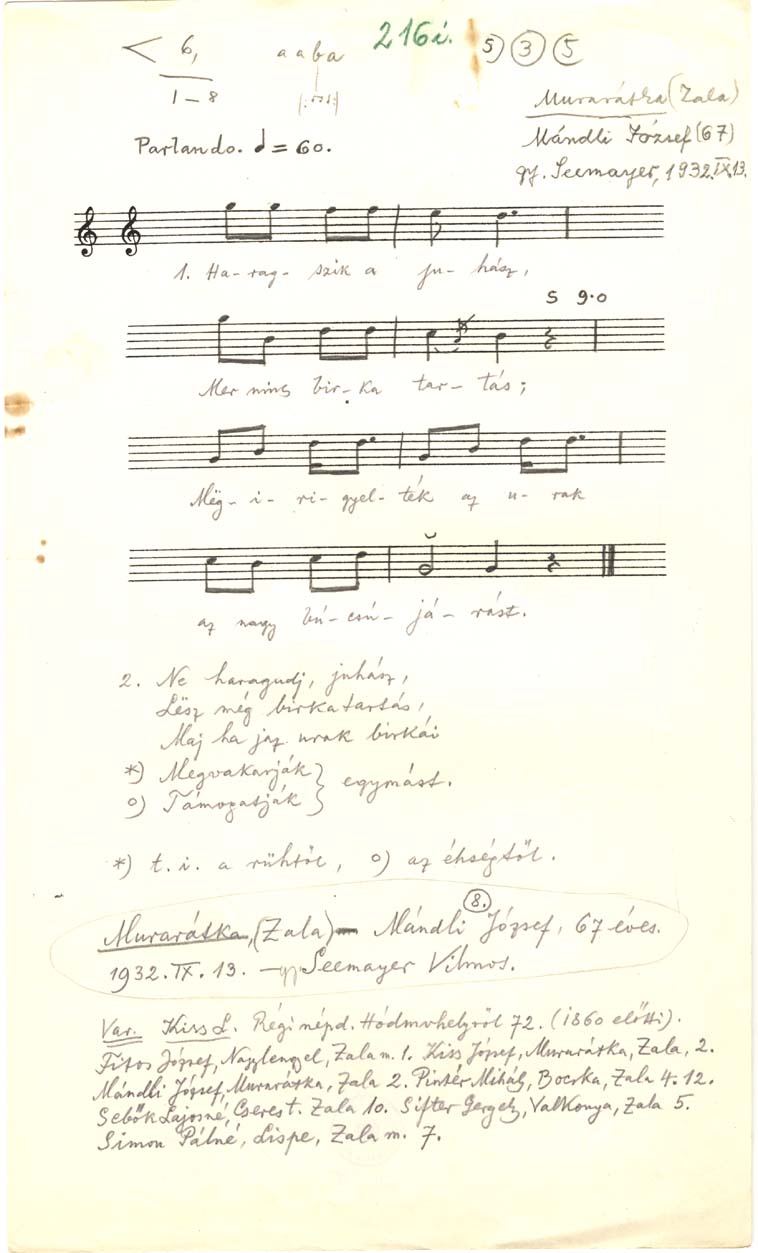 6,
1 – 8
a a b a
216i.
5) 3 5
Murarátka (Zala)
Mándli József (67)
gy. Seemayer, 1932.IX.13.
Parlando. ♩ = 60.
1. Ha- rag- szik a ju- hász,
5 9.0
Mer nincs bir- ka tar- tás;
Mëg- i- ri- gyel- ték az u- rak
az nagy bú- csú- já- rást.
2. Ne haragudj, juhász,
Lësz még birkatartás,
Maj ha jaz urak birkái
*) Mëgvakarják
o) Támogatják } egymást.
*) t. i. a rühtől, o) az éhségtől.
8.
Murarátka, (Zala) – Mándli József, 67 éves.
1932. IX. 13. – gy. Seemayer Vilmos.
Var. Kiss L. Régi népd. Hódmvhelyről 72. (1860 előtti).
Fitos József, Nagylengyel, Zala m. 1. Kiss József, Murarátka, Zala, 2.
Mándli József, Murarátka, Zala 2. Pintér Mihály, Bocska, Zala 4. 12.
Sebők Lajosné, Cserest. Zala 10. Sifter Gergely, Valkonya, Zala 5.
Simon Pálné, Lispe, Zala m. 7.